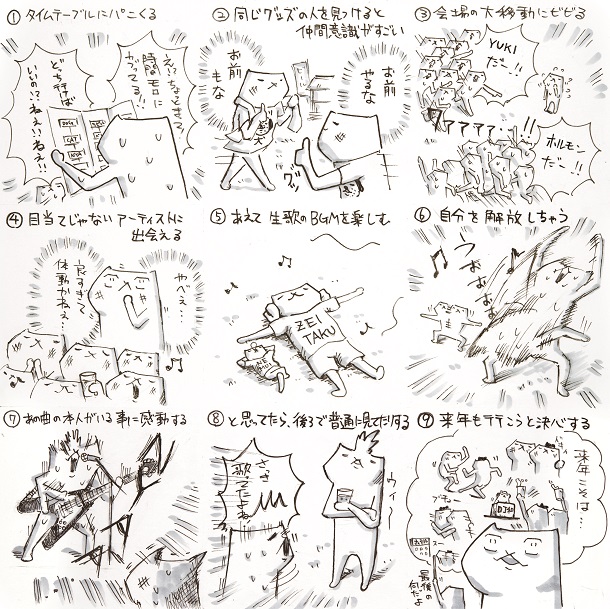 ① タイムテーブルにパニくる
え!?ちょとまって!
時間モロに
かぶってる!!
どち行けば
いいの!?ねぇ!!ねぇ!!
② 同じグッズの人を見つけると
仲間意識がすごい
お前
やるな
お前
もな
グッ
③ 会場の大移動にビビる
YUKI
だー!!
ワァァァァ…!!
ホルモン
だー!!
④ 目当てじゃないアーティストに
出会える
やべぇ…
良すぎて
体動かねぇ…
⑤ あえて生歌のBGMを楽しむ
ZEI
TAKU
⑥ 自分を解放しちゃう
うおおおお
⑦ あの曲の本人がいる事に感動する
⑧ と思ってたら、後ろで普通に見てたりする
さっき
歌ってたよね…
ウィー
⑨ 来年も行こうと決心する
来年こそは…
DJ
スー
最後の
何だよ